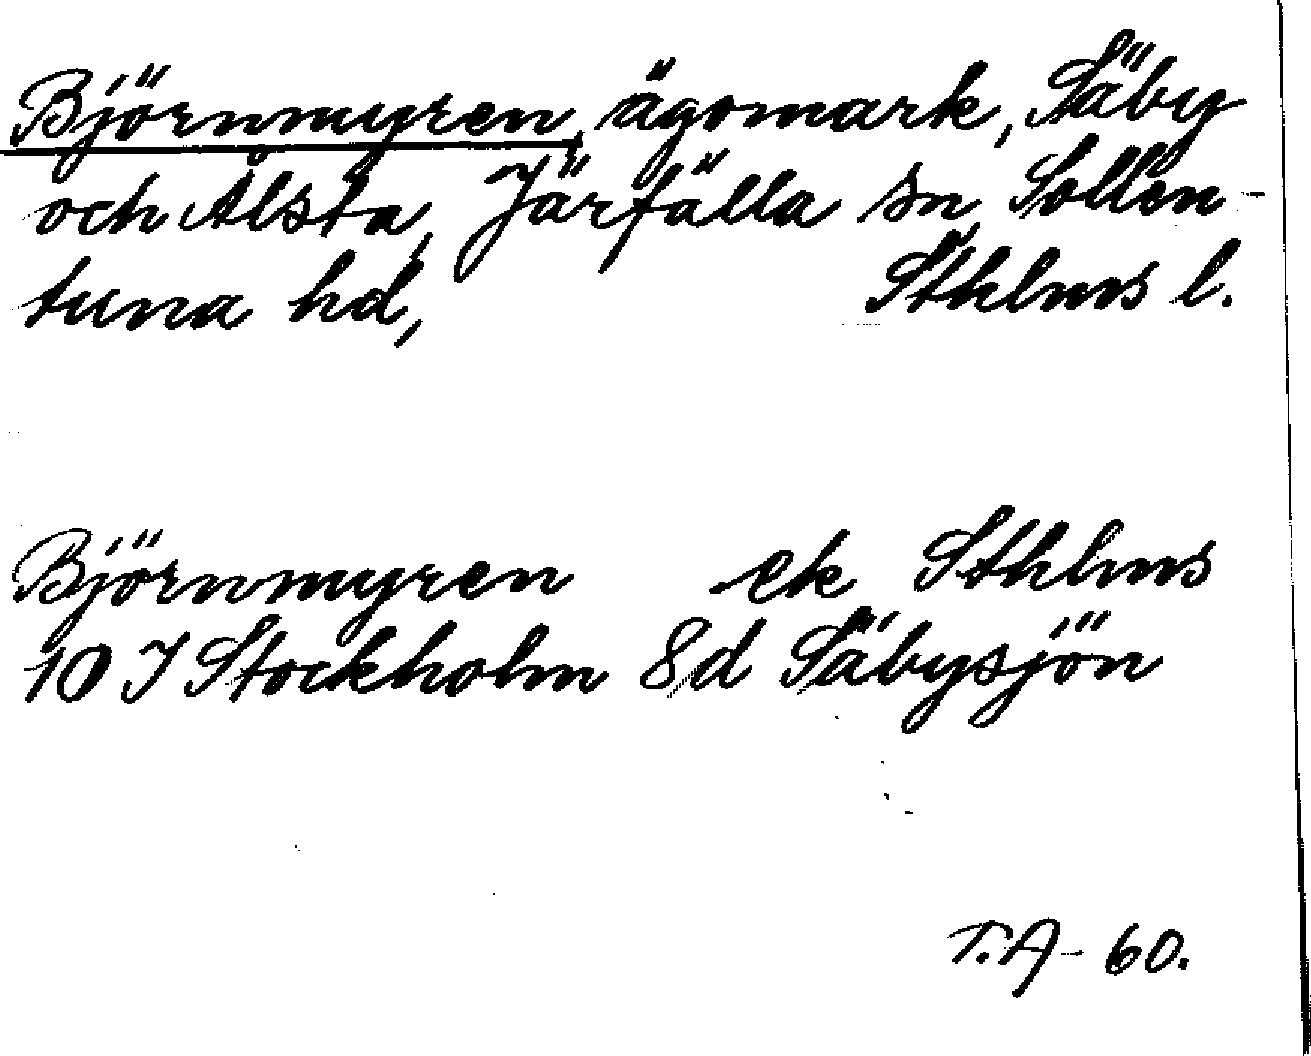 Björnmyren, ägomark, Säby
och Ålsta, Järfälla sn, Sollen-
tuna hd, Sthlms l.
Björnmyren ek Sthlms
10 I Stockholm 8d Säbysjön
T.A - 60.